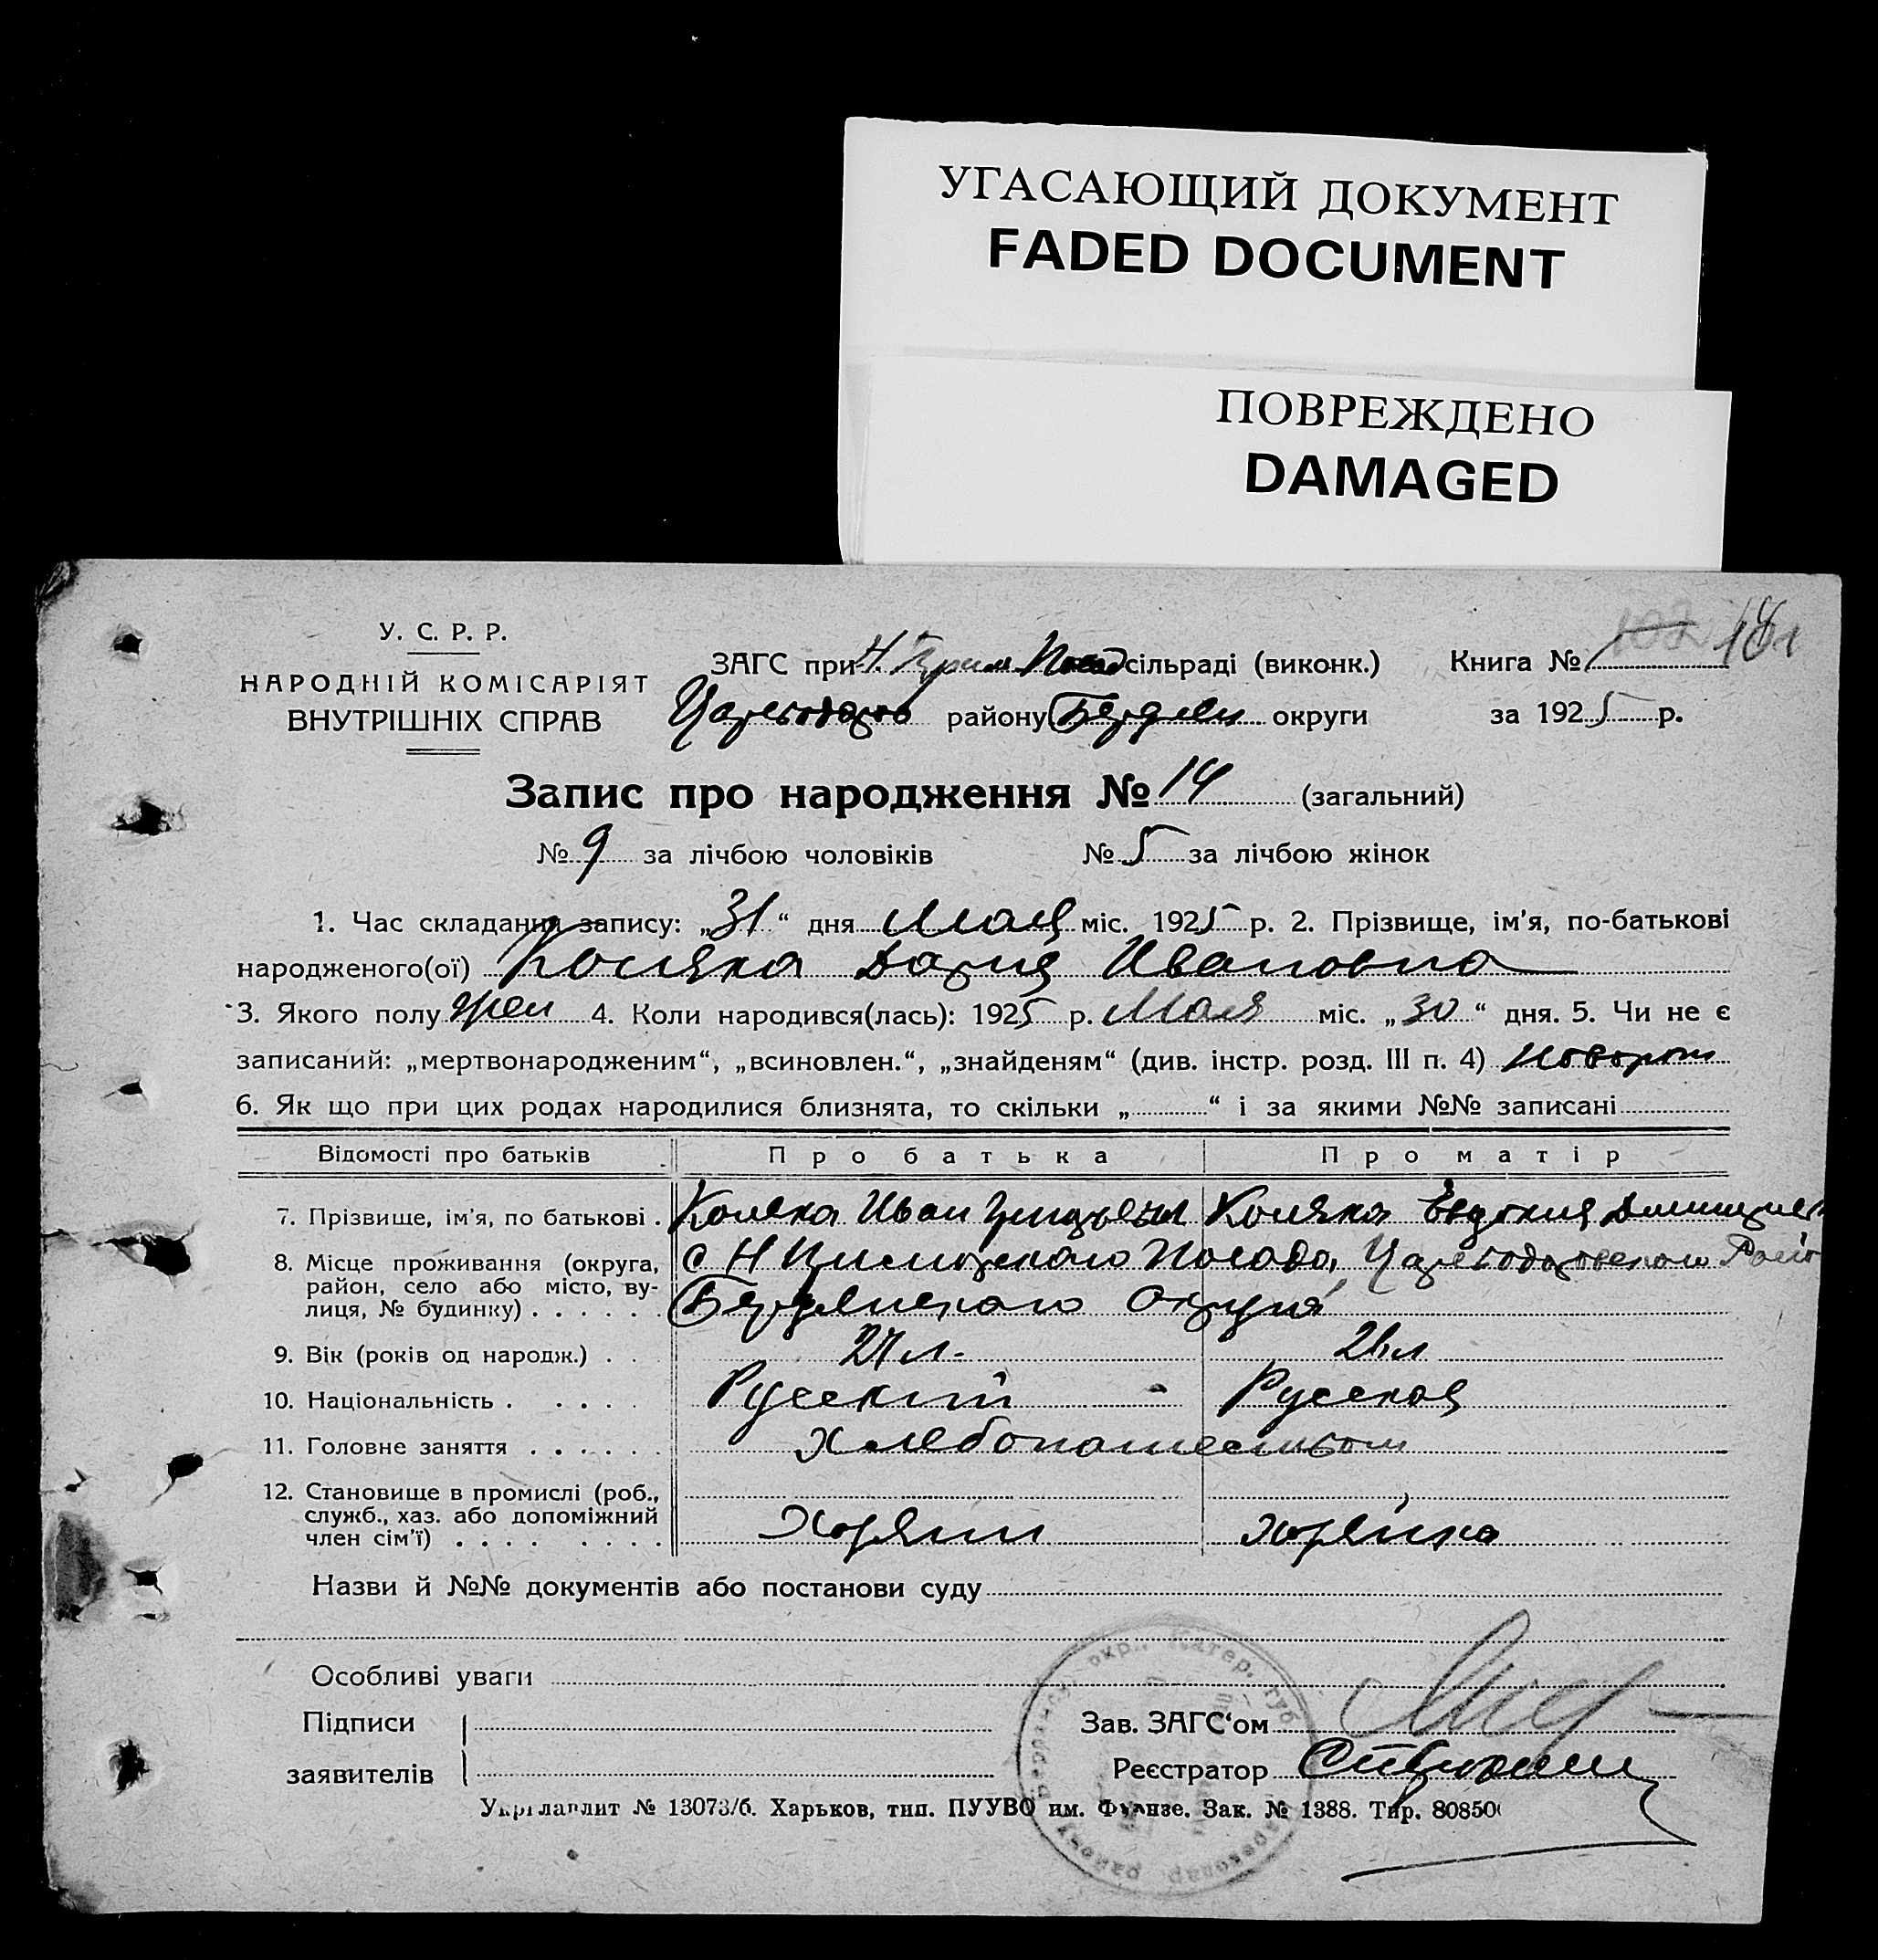 УГАСАЮЩИЙ ДОКУМЕНТ
FADED DOCUMENT
ПОВРЕЖДЕНО
DAMAGED
181
У. С. Р. Р.
НАРОДНІЙ КОМІСАРІЯТ
ВНУТРІШНІХ СПРАВ
ЗАГС при Н. Посад сільраді (виконк.) Книга №
району Бердян округи за 1925 р.
Запис про народження № 14 (загальний)
№ 9 за лічбою чоловіків № 5 за лічбою жінок
1. Час складання запису: „31“ дня Мая міс. 1925 р. 2. Прізвище, ім'я, по-батькові
народженого(ої) Дария Ивановна
3. Якого полу жен 4. Коли народився(лась): 1925 р. Мая міс. „30“ дня. 5. Чи не є
записаний: „мертвонародженим“, „всиновлен.“, „знайденям“ (див. інстр. розд. III п. 4)
6. Як що при цих родах народилися близнята, то скільки „ “ і за якими №№ записані
Відомості про батьків Про батька Про матір
7. Прізвище, ім'я, по батькові . Иван Евдокия
8. Місце проживання (округа, с Н Посада,
район, село або місто, ву-
лиця, № будинку) . . . . . Бердянского Округа
9. Вік (років од народж.) . . 27 л. л
10. Національність . . . . . Русский Русская
11. Головне заняття . . . . . . Хлебопашеством
12. Становище в промислі (роб.,
служб., хаз. або допоміжний
член сім'ї) . . . . . . . . Хозяин хозяйка
Назви й №№ документів або постанови суду
Особливі уваги
Підписи
заявителів
Зав. ЗАГС‘ом
Реєстратор
Укрглавлит № 13073/б. Харьков, тип. ПУУВО им. Фрунзе. Зак. № 1388. Тир. 80850